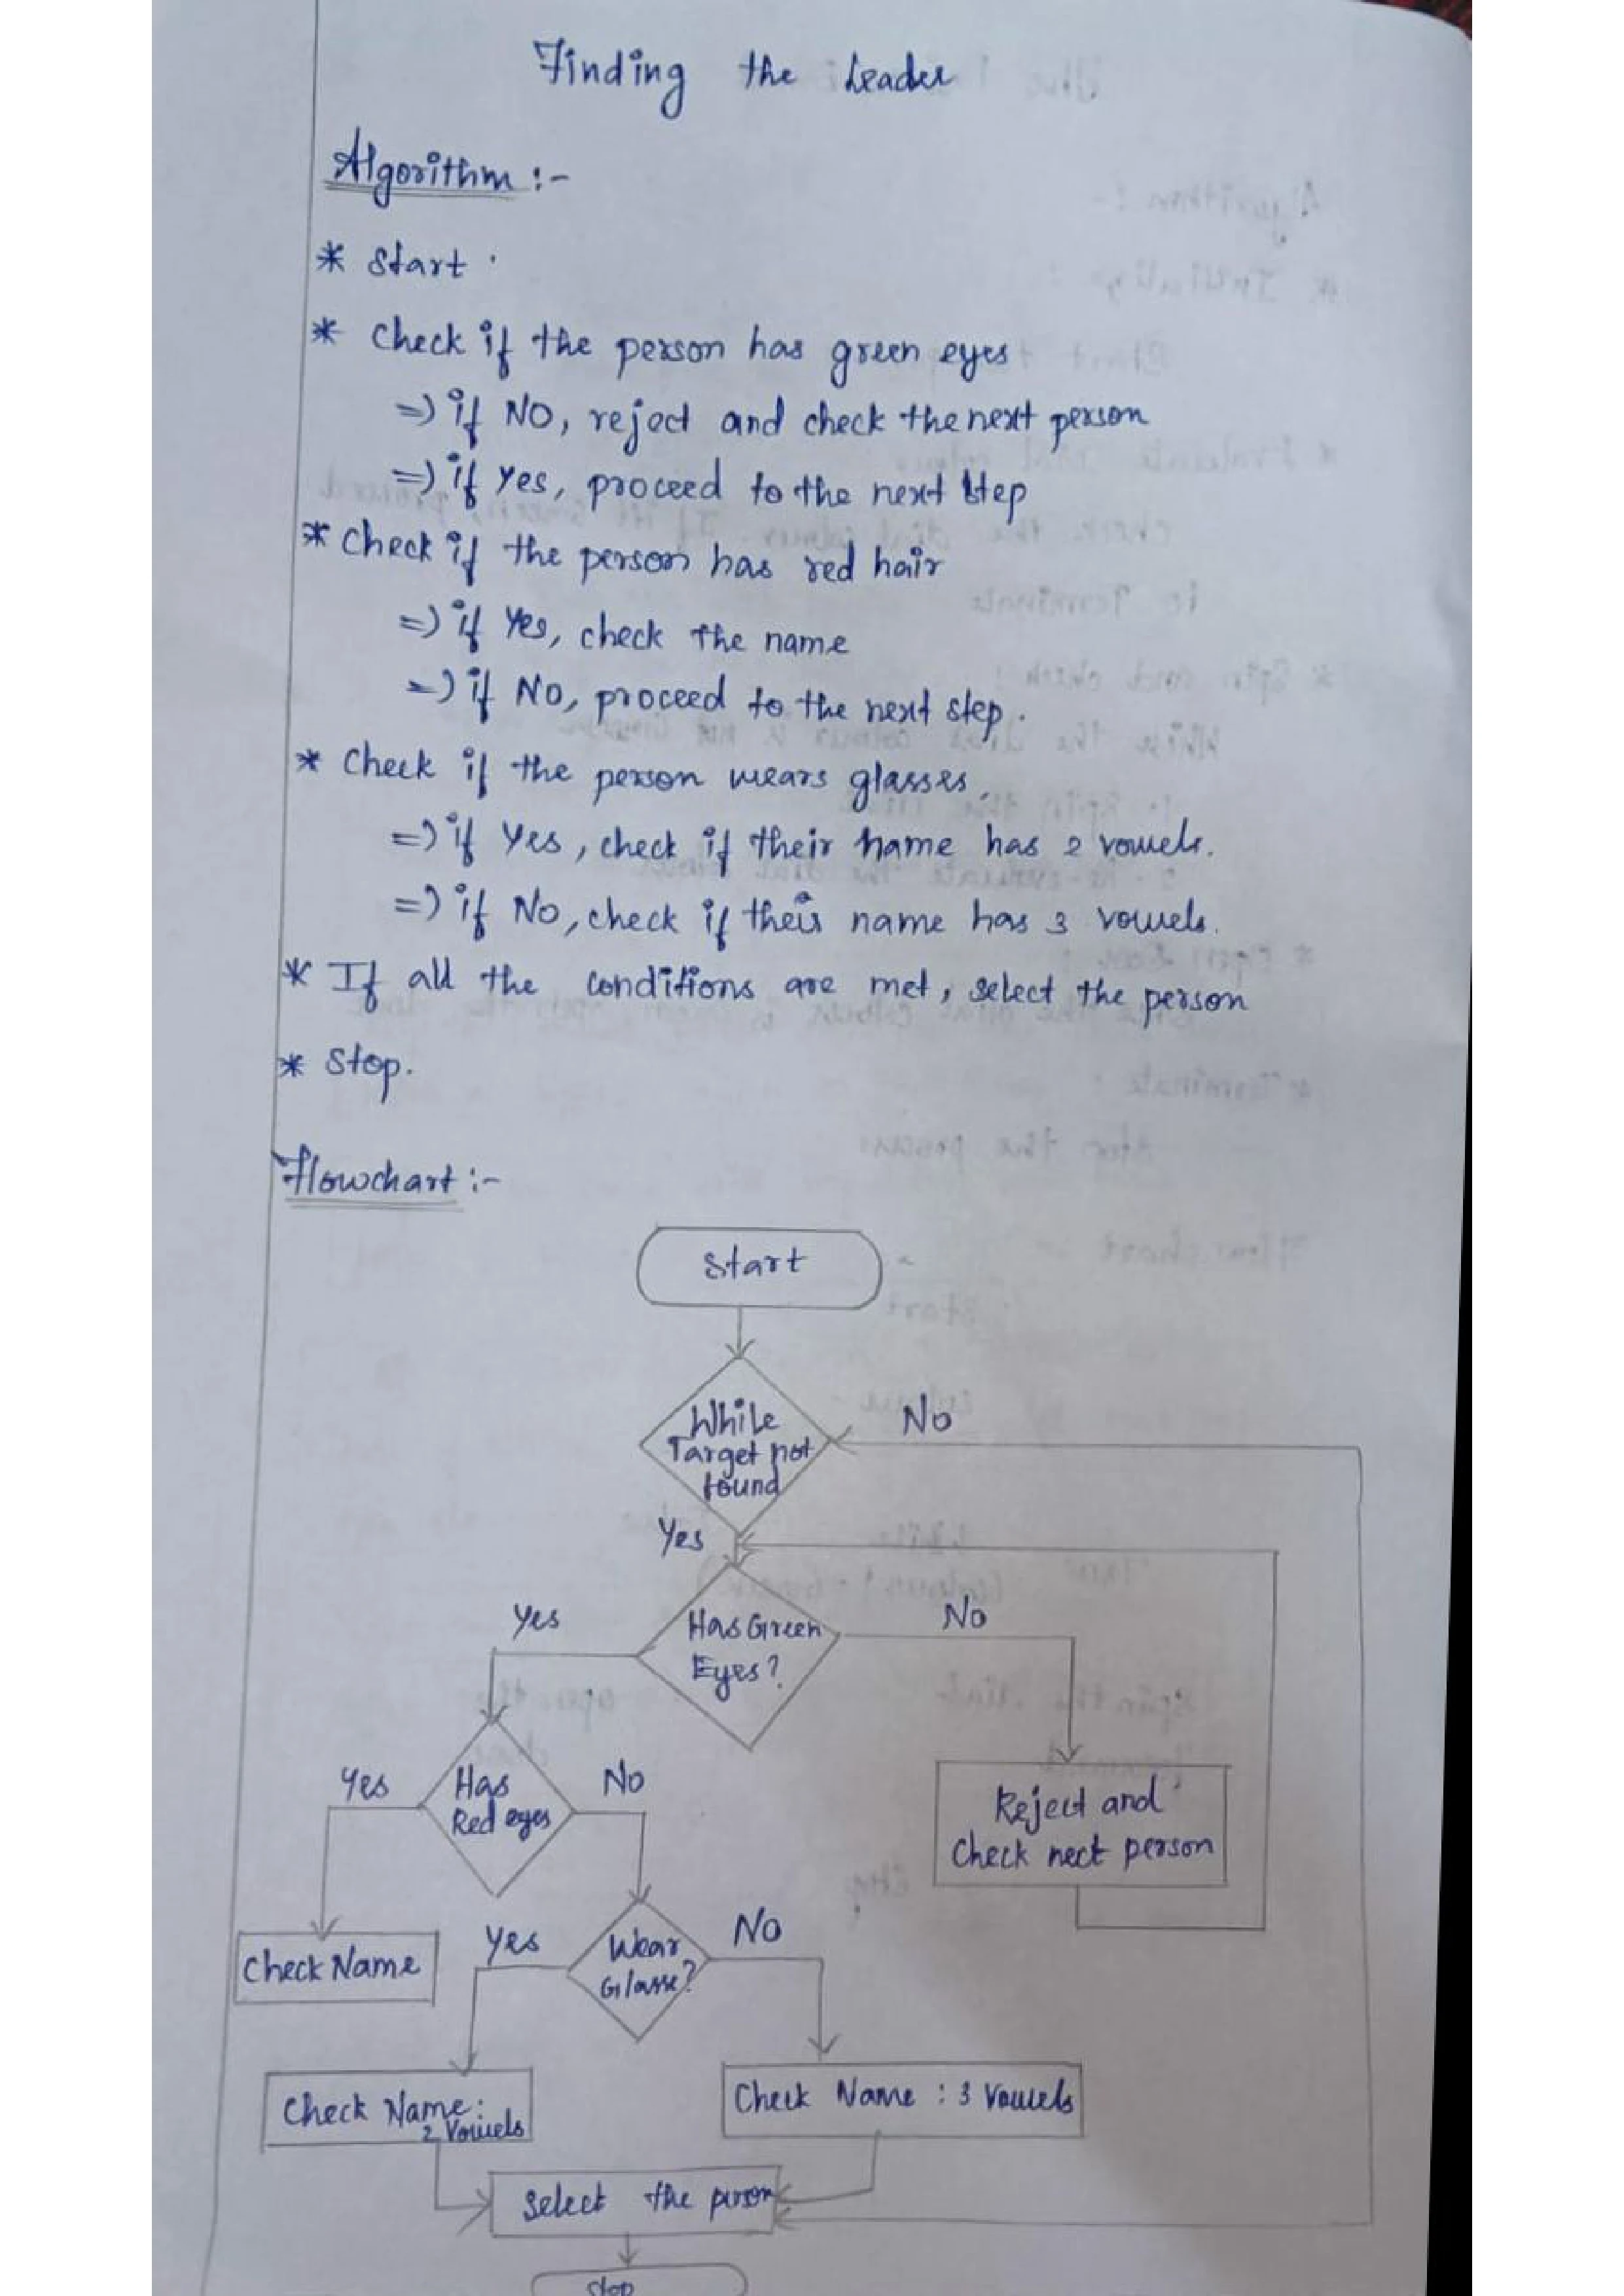 Finding the Leader
Algorithm :-
* Start.
* Check if the person has green eyes
=) if NO, reject and check the next person
=) if Yes, proceed to the next step
* Check if the person has red hair
=) if Yes, check the name
=) if No, proceed to the next step.
* Check if the person wears glasses.
=) if Yes, check if their name has 2 vowels.
=) if No, check if their name has 3 vowels.
* If all the conditions are met, select the person
* Stop.
Flowchart :-
Start
While
Target not
found
No
Yes
Has Green
Eyes?
Yes
No
Has
Red eyes
Yes
No
Reject and
Check nect person
Check Name
Wear
Glasse?
Yes
No
Check Name:
2 Vowels
Check Name : 3 Vowels
Select the person
Stop